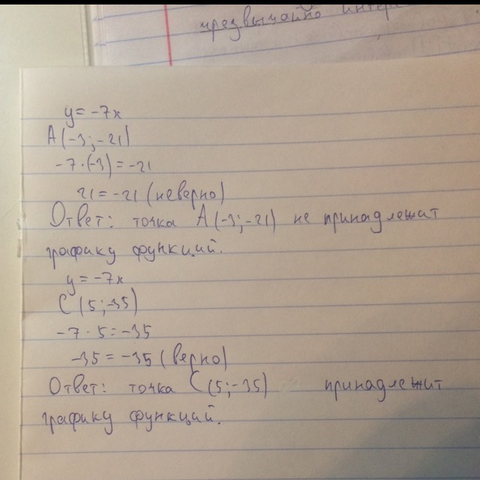 чрезвычайно
y = -7x
A(-3; -21)
-7·(-3) = -21
21 = -21 (неверно)
Ответ: точка A(-3; -21) не принадлежит
графику функций.
y = -7x
C(5; -35)
-7·5 = -35
-35 = -35 (верно)
Ответ: точка C(5; -35) принадлежит
графику функций.